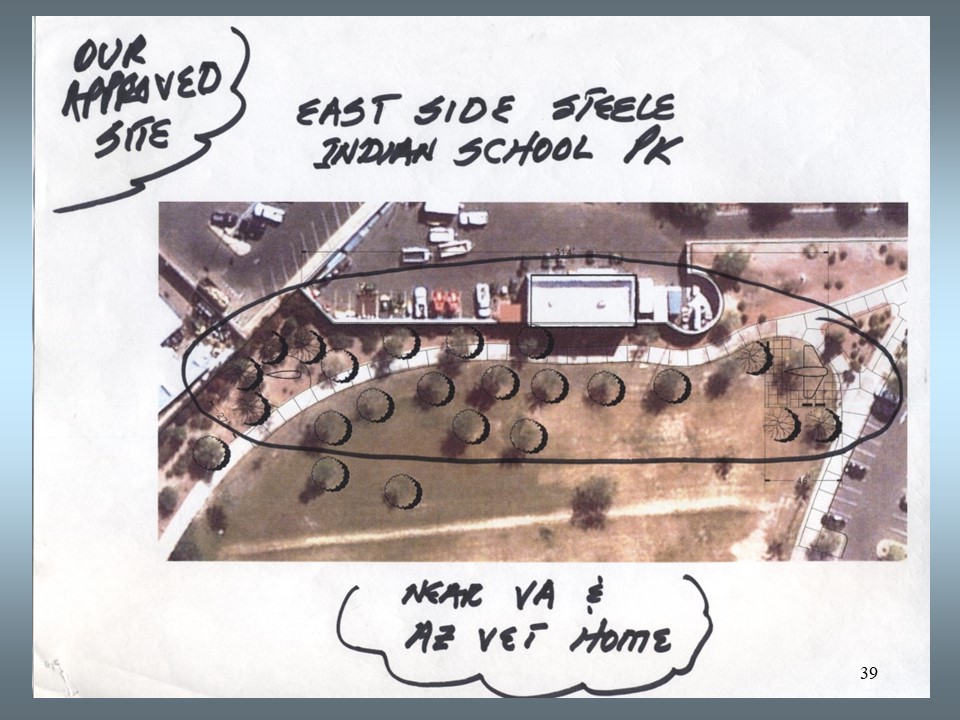 OUR
APPROVED
SITE
EAST SIDE STEELE
INDIAN SCHOOL PK
314'
46'
NEAR VA &
AZ VET HOME
39